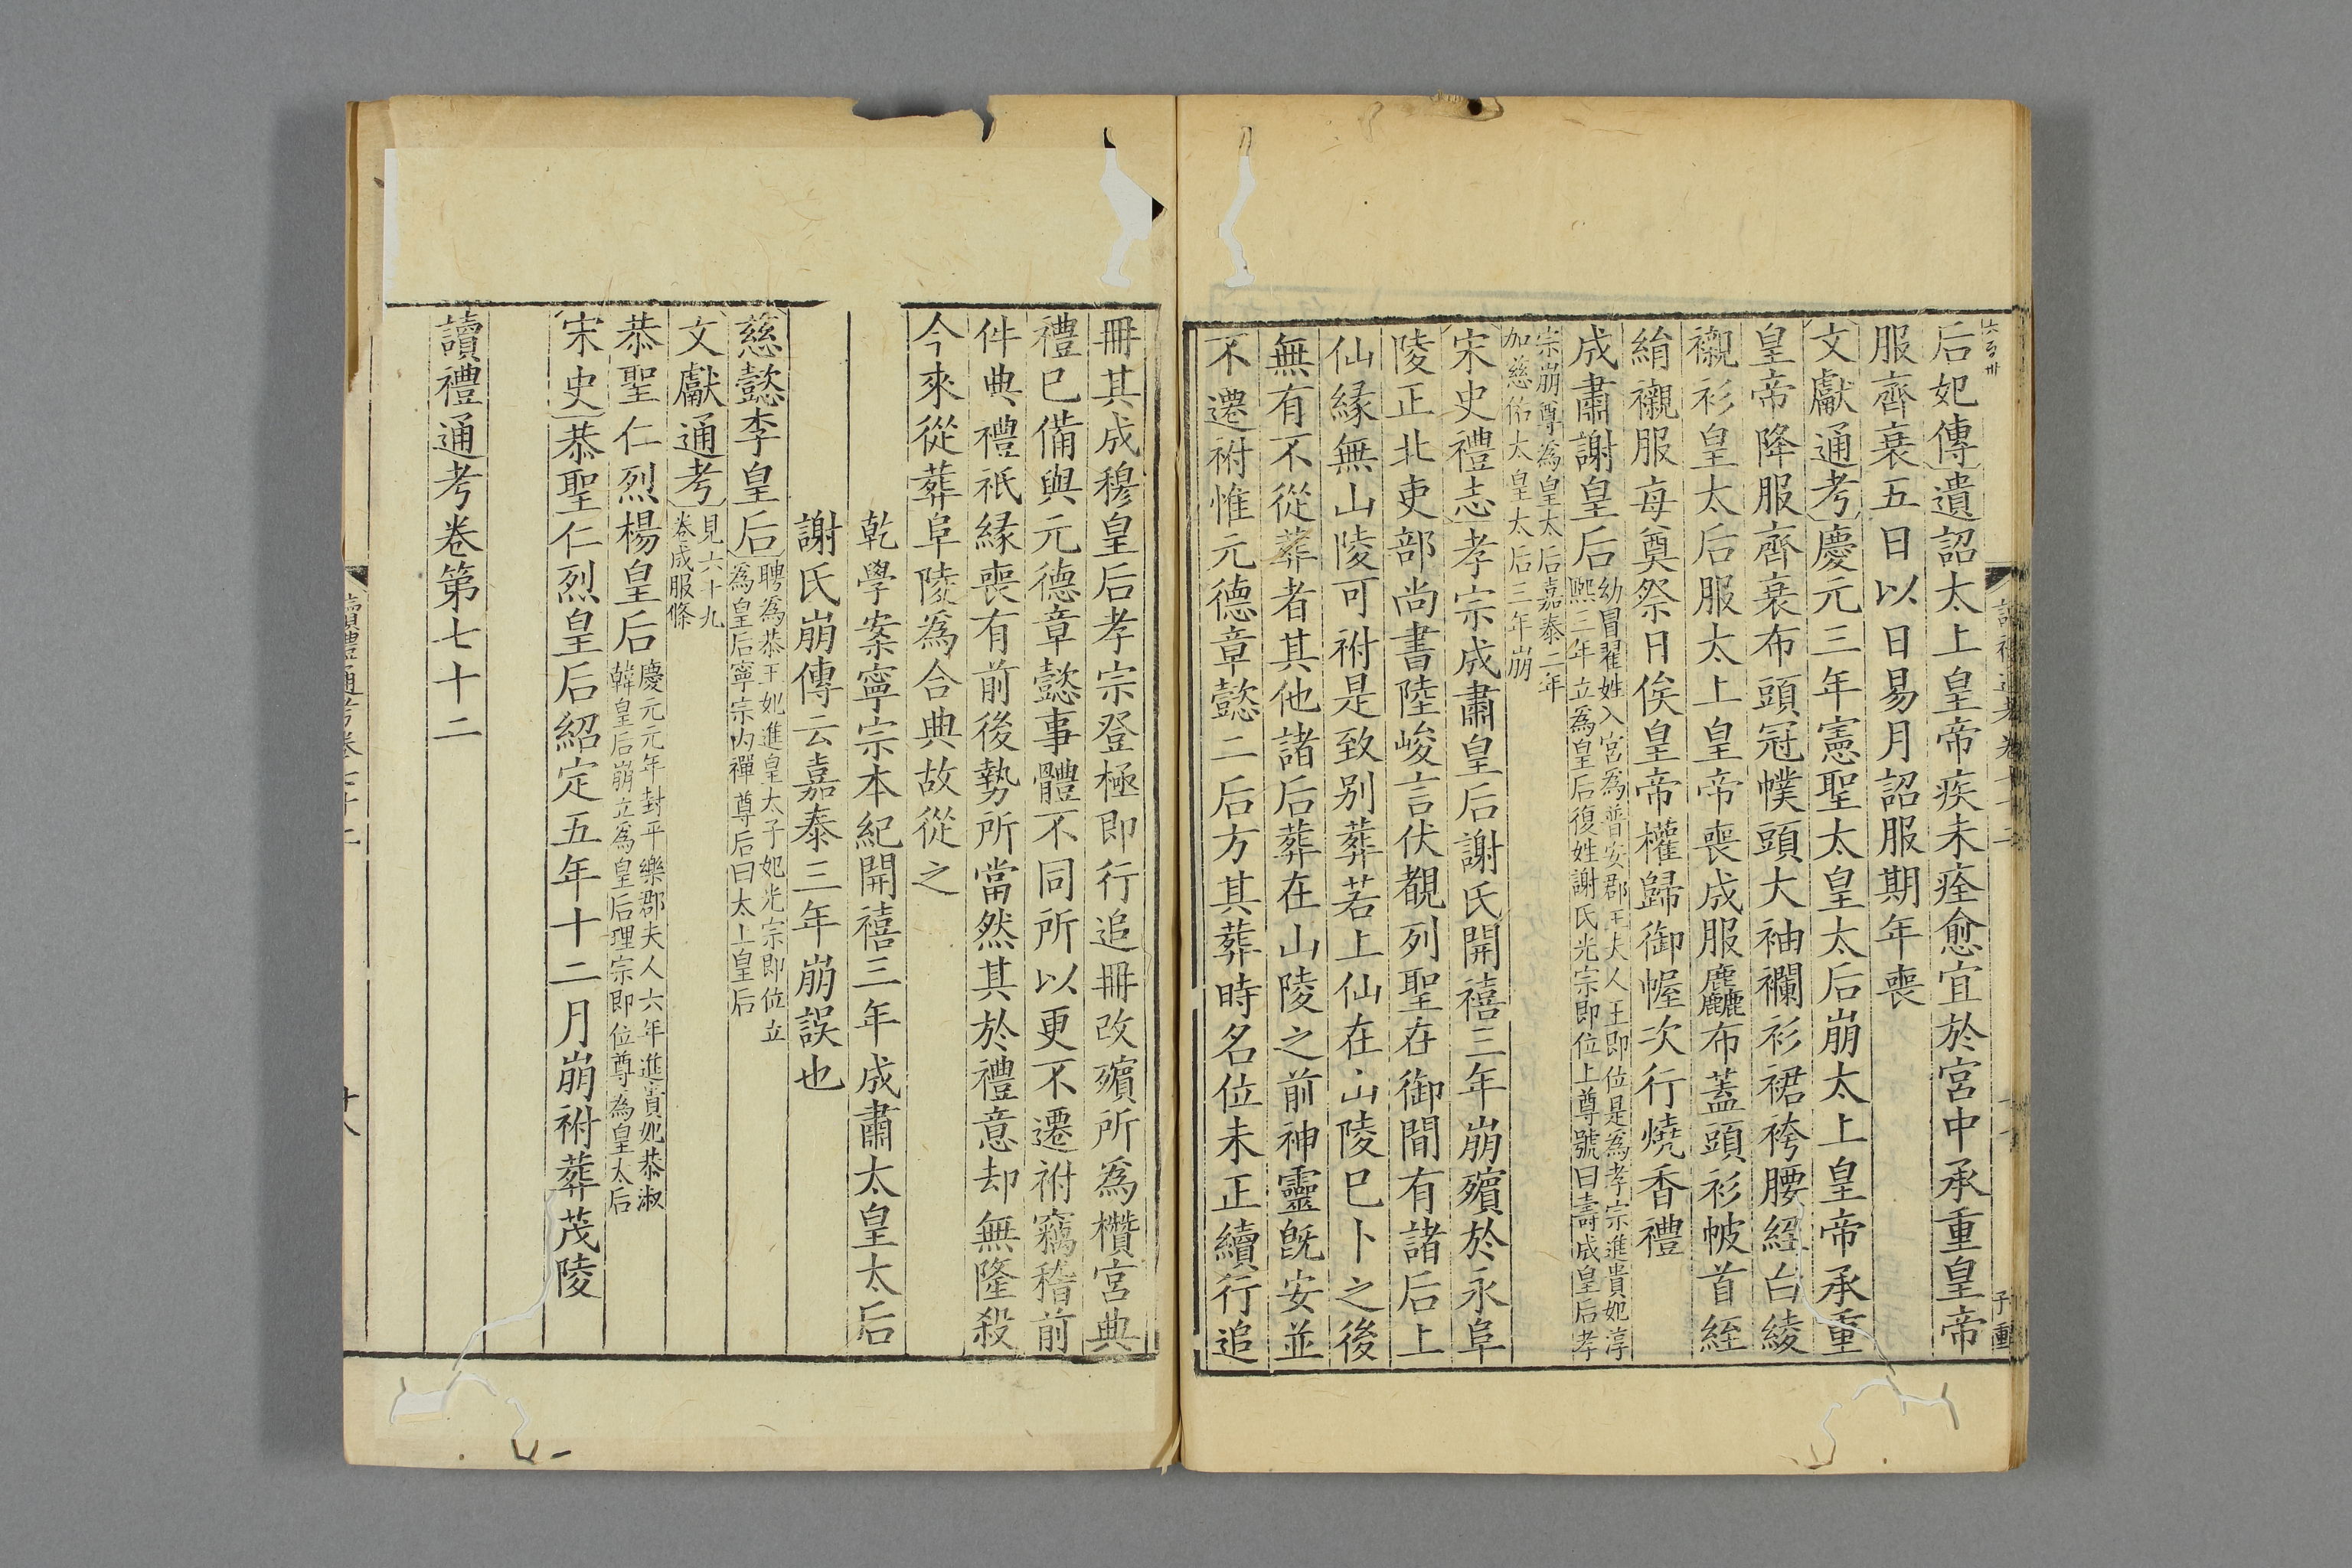 后妃傳遺詔太上皇帝疾未痊愈宜於宮中承重皇帝
服齊衰五日以日易月詔服期年喪
文獻通考慶元三年憲聖太皇太后崩太上皇帝承重
皇帝降服齊衰布頭冠幞頭大袖襴衫裙袴腰絰白綾
襯衫皇太后服太上皇帝喪成服麤布蓋頭衫帔首絰
絹襯服每奠祭日俟皇帝權歸御幄次行燒香禮
成肅謝皇后幼冒翟姓入宮爲普安郡王夫人王即位是爲孝宗進貴妃淳
熙三年立爲皇后復姓謝氏光宗即位上尊號曰壽成皇后孝
宗崩尊為皇太后嘉泰二年
加慈佑太皇太后三年崩
宋史禮志孝宗成肅皇后謝氏開禧三年崩殯於永阜
陵正北吏部尚書陸峻言伏覩列聖在御間有諸后上
仙緣無山陵可祔是致別葬若上仙在山陵已卜之後
無有不從葬者其他諸后葬在山陵之前神靈旣安並
不遷祔惟元德章懿二后方其葬時名位未正續行追
冊其成穆皇后孝宗登極即行追冊改殯所爲欑宮典
禮已備與元德章懿事體不同所以更不遷祔竊稽前
件典禮祇緣喪有前後勢所當然其於禮意却無隆殺
今來從葬阜陵爲合典故從之
乾學案寧宗本紀開禧三年成肅太皇太后
謝氏崩傳云嘉泰三年崩誤也
慈懿李皇后聘爲恭王妃進皇太子妃光宗即位立
爲皇后寧宗内禪尊后曰太上皇后
文獻通考見六十九
卷成服條
恭聖仁烈楊皇后慶元元年封平樂郡夫人六年進貴妃恭淑
韓皇后崩立爲皇后理宗即位尊為皇太后
宋史恭聖仁烈皇后紹定五年十二月崩祔葬茂陵
讀禮通考卷第七十二